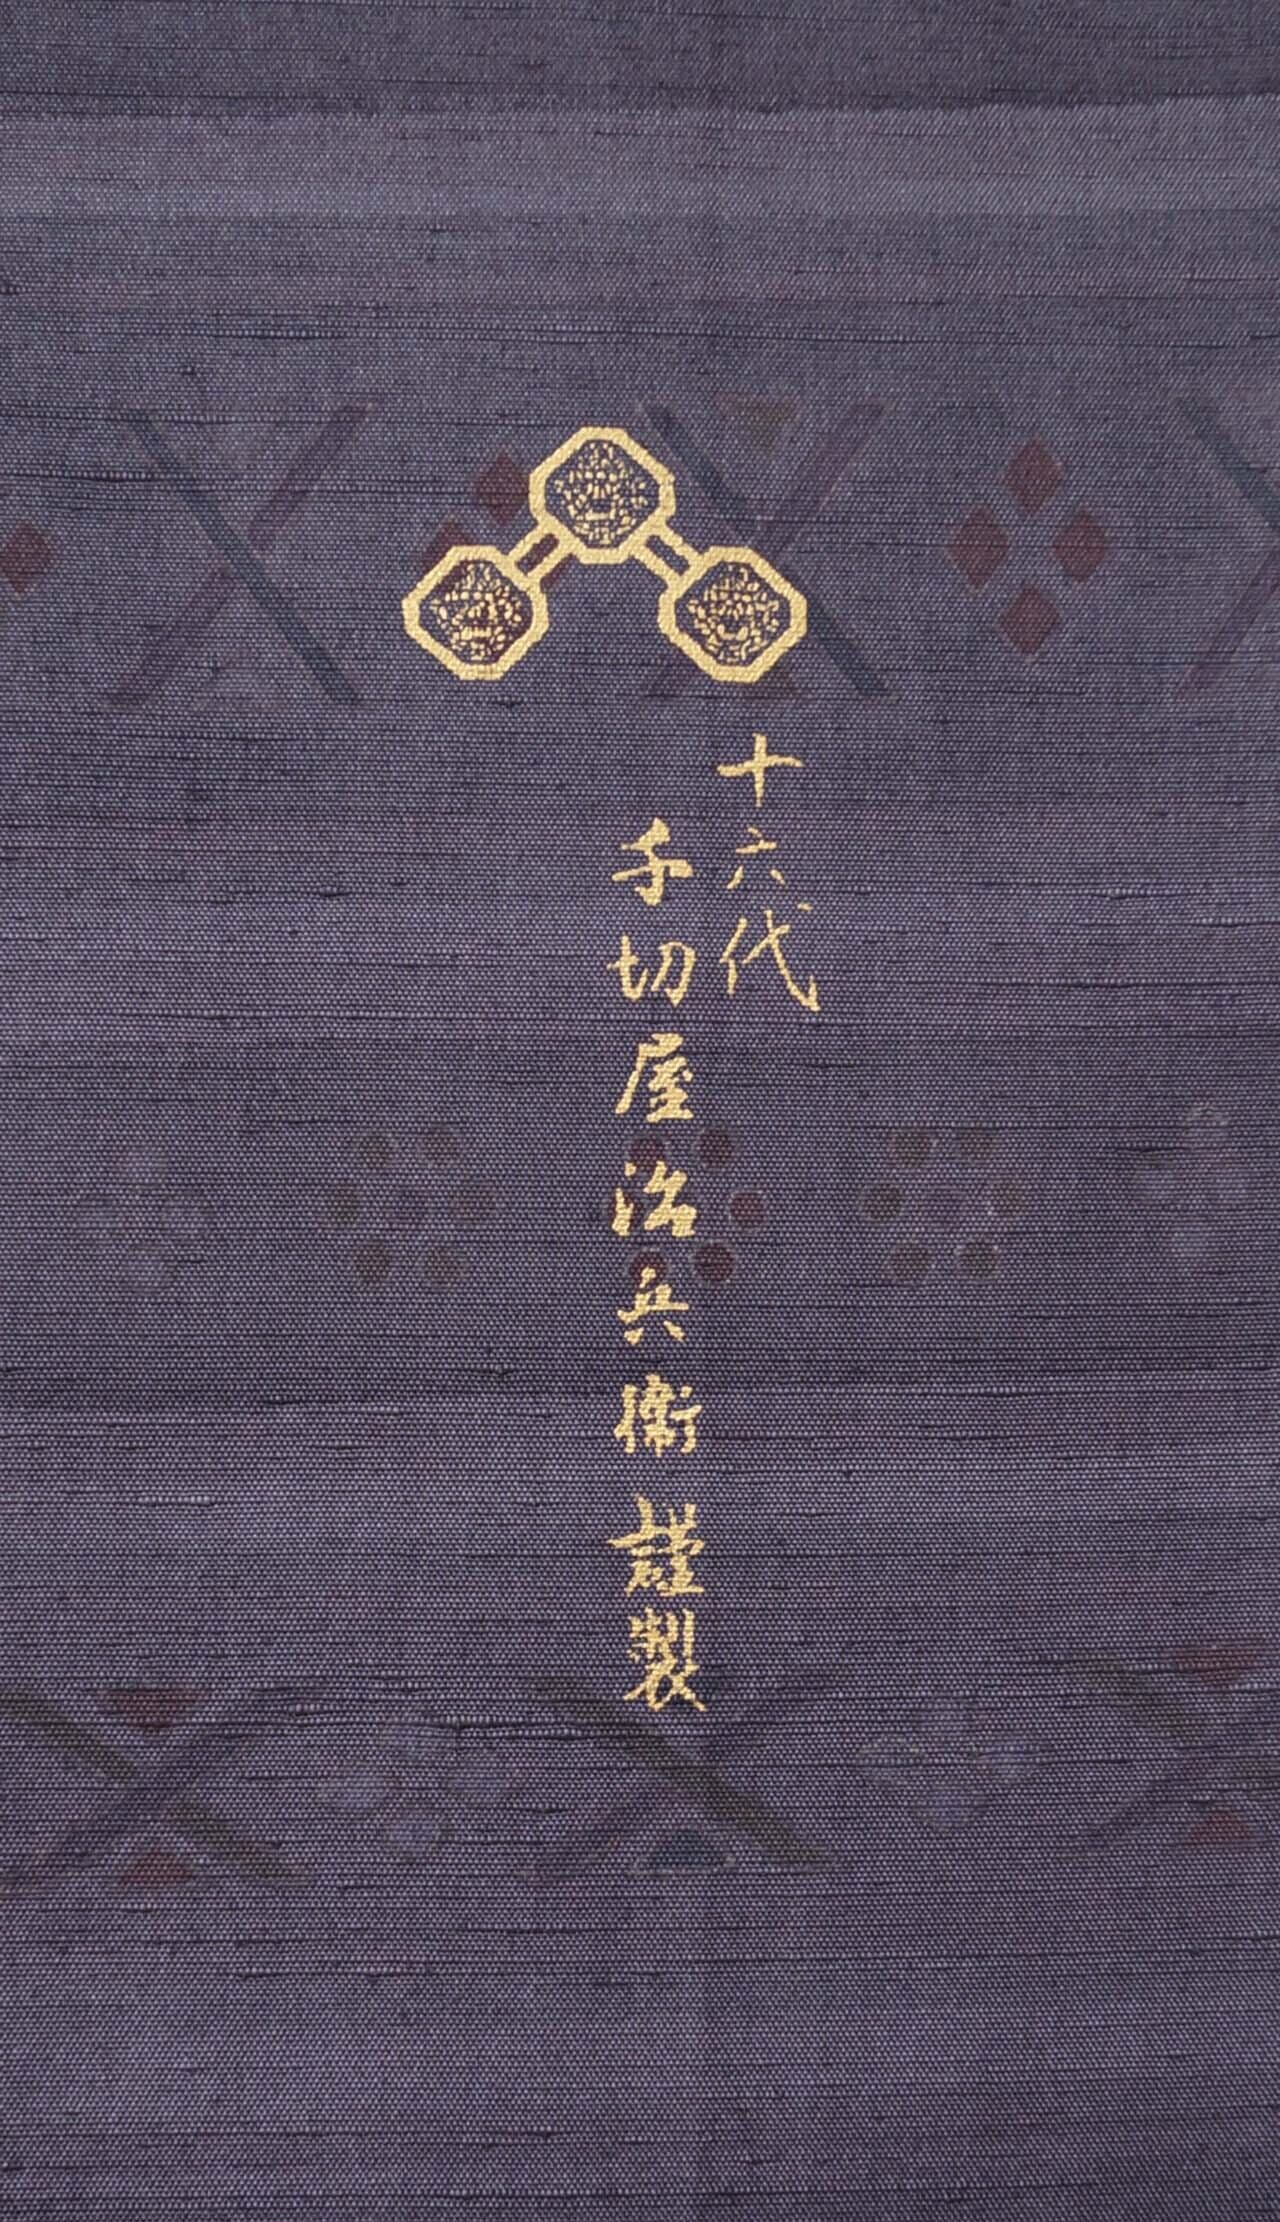 十六代
千切屋治兵衛 謹製